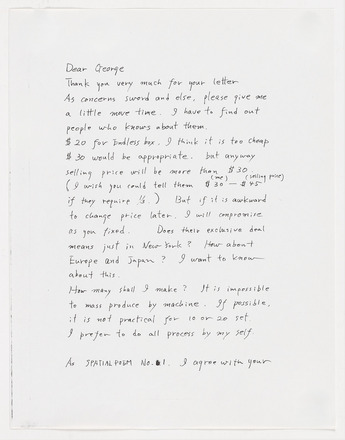 Dear George
Thank you very much for your letter
As concerns sword and else, please give me
a little more time. I have to find out
people who knows about them.
$20 for Endless box, I think it is too cheap
$30 would be appropriate. but anyway
selling price will be more than $30
(me) (selling price)
(I wish you could tell them $30 — $45
if they require ⅓.) But if it is awkward
to change price later. I will compromise
as you fixed. Does their exclusive deal
means just in New York? How about
Europe and Japan? I want to know
about this.
How many shall I make? It is impossible
to mass produce by machine. If possible,
it is not practical for 10 or 20 set.
I prefer to do all process by my self
As SPATIAL POEM No. 1. I agree with your